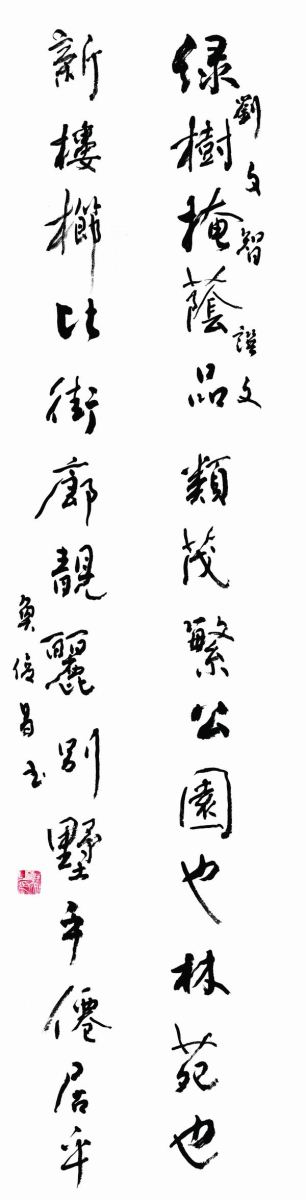 劉文智譔文
綠樹掩蔭品類茂繁公園也林苑也
新樓櫛比街廊靚麗別墅乎僊居乎
倍昌书